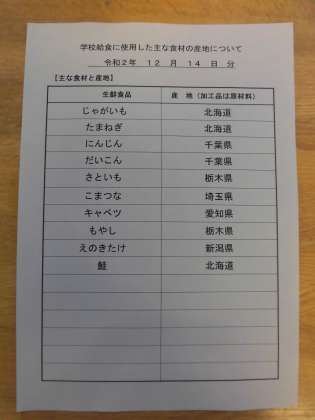 学校給食に使用した主な食材の産地について
令和2年 12 月 14 日 分
【主な食材と産地】
生鮮食品 産 地（加工品は原材料）
じゃがいも 北海道
たまねぎ 北海道
にんじん 千葉県
だいこん 千葉県
さといも 栃木県
こまつな 埼玉県
キャベツ 愛知県
もやし 栃木県
えのきたけ 新潟県
鮭 北海道